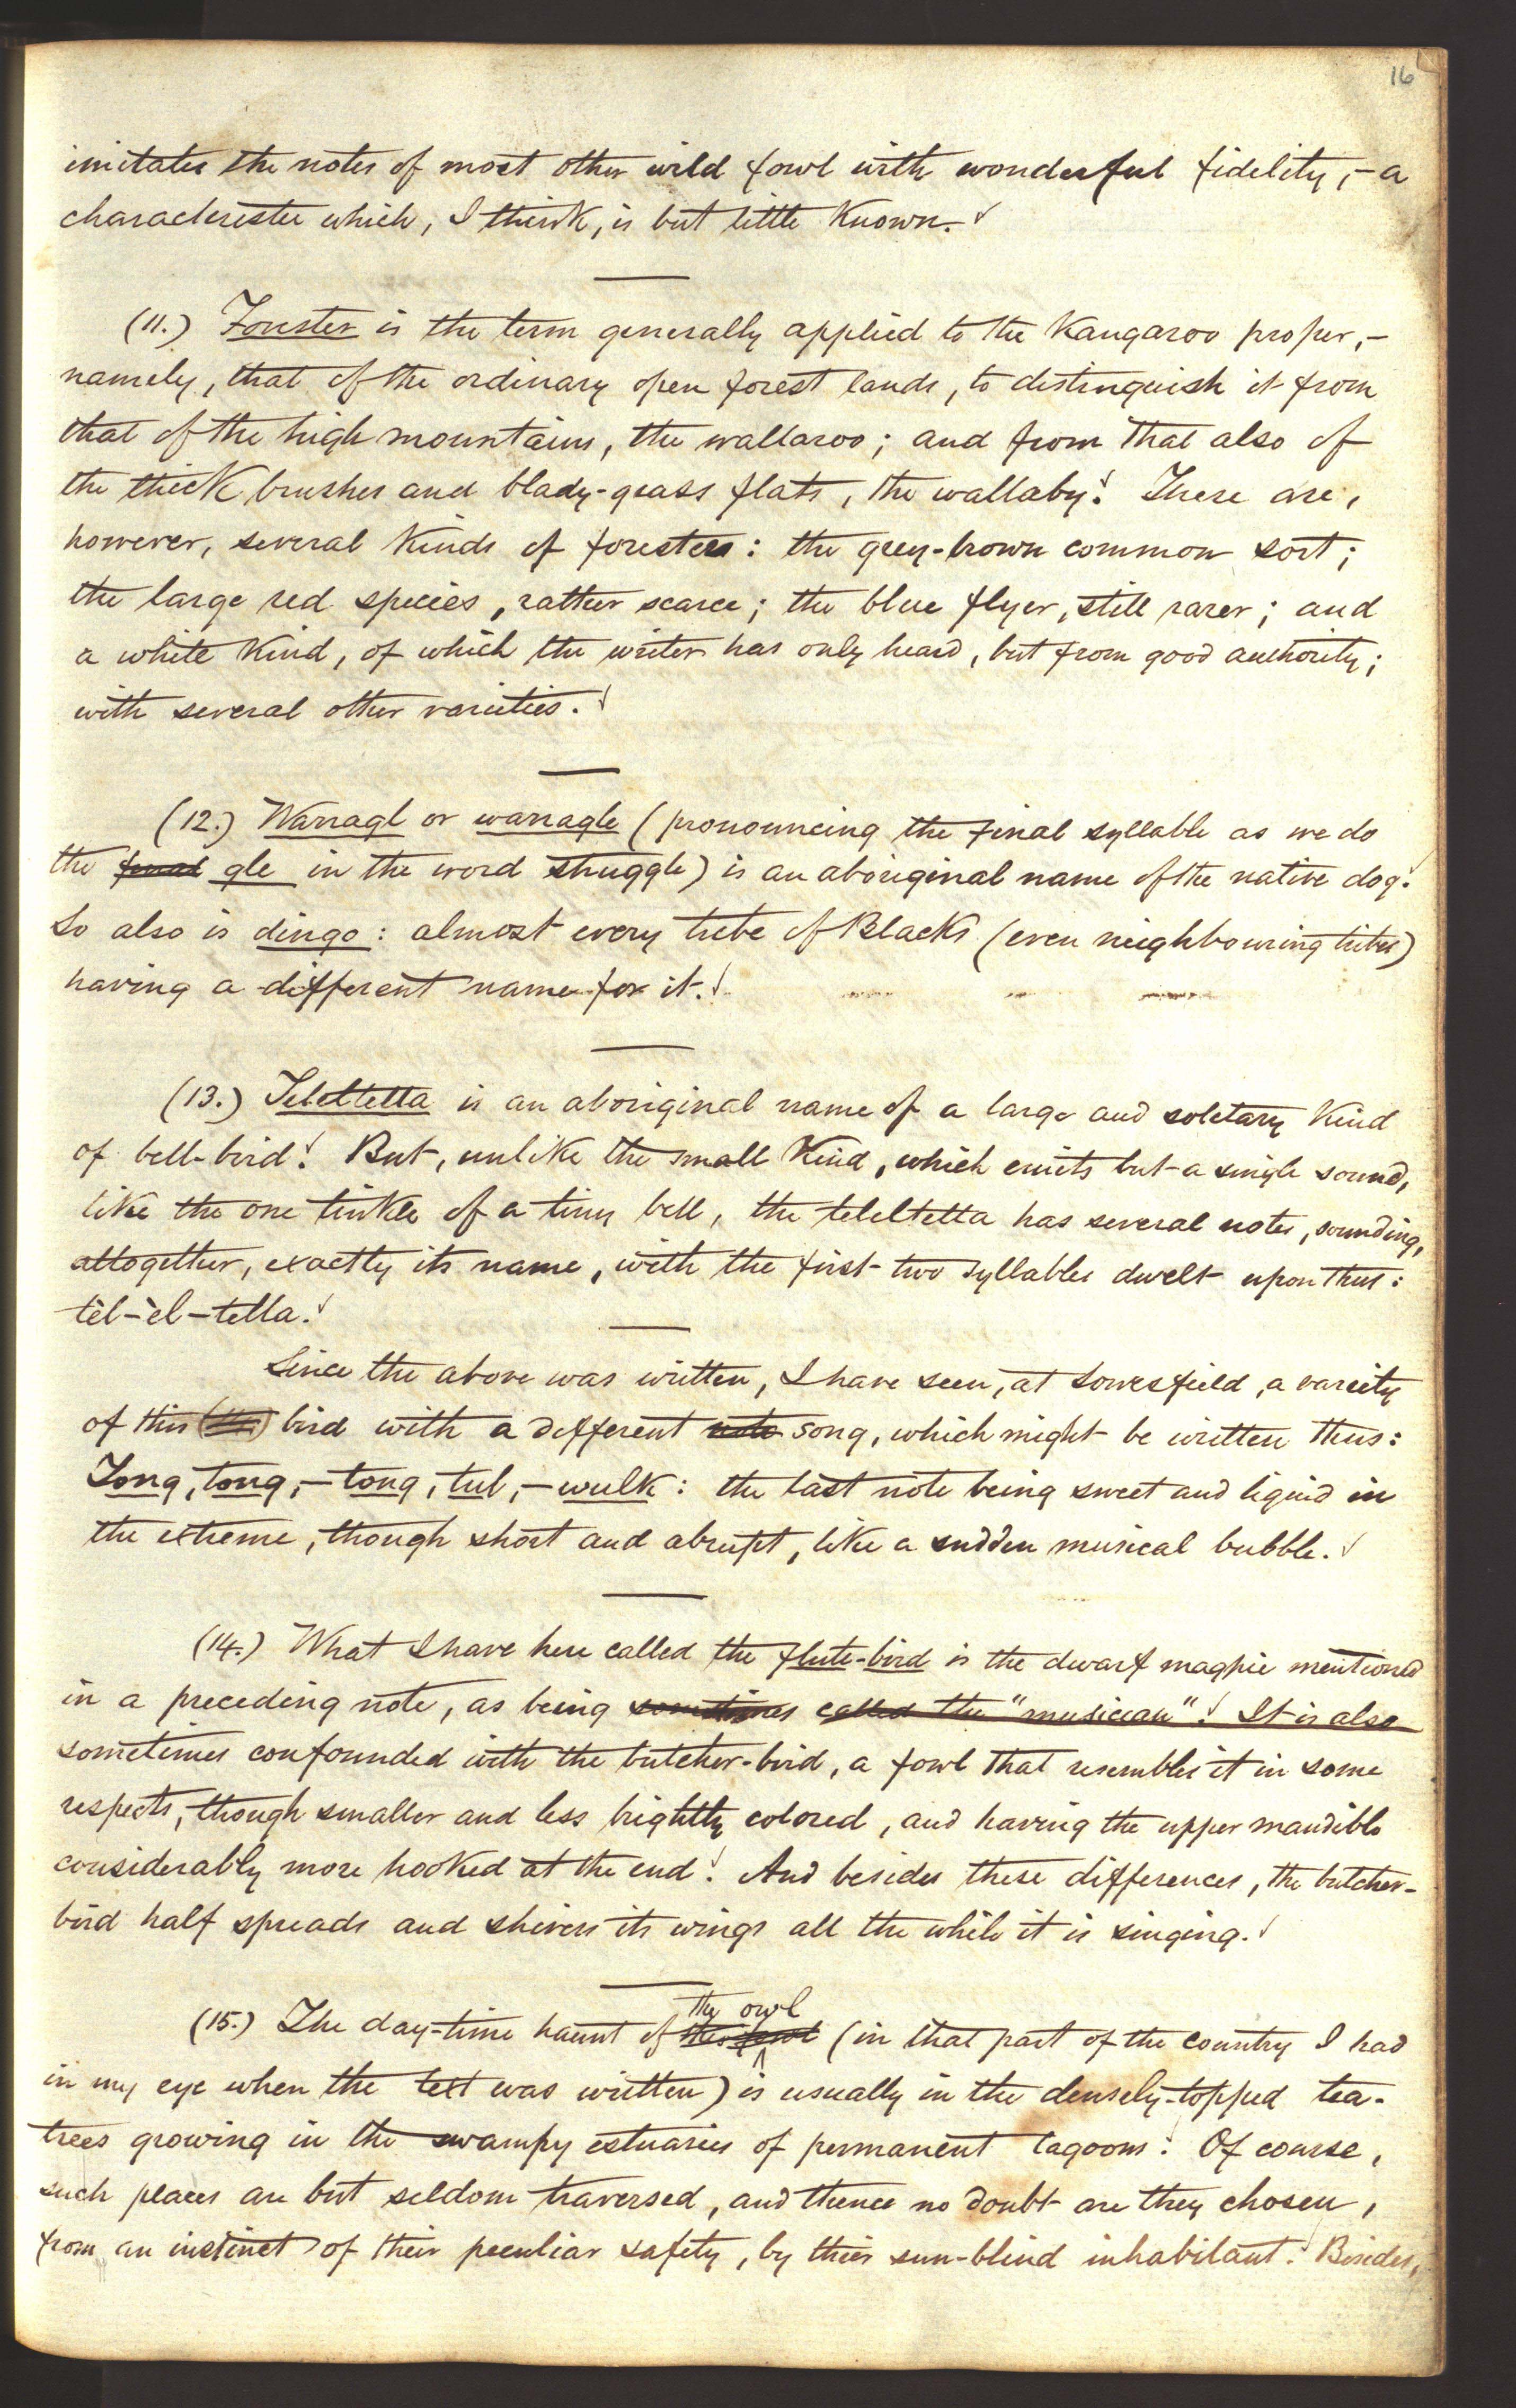 16
imitates the notes of most other wild fowl with wonderful fidelity,—a
characteristic which, I think, is but little known.
(11.) Forester is the term generally applied to the Kangaroo proper,—
namely, that of the ordinary open forest lands, to distinguish it from
that of the high mountains, the wallaroo; and from that also of
the thick brushes and blady-grass flats, the wallaby. There are,
however, several kinds of foresters: the grey-brown common sort;
the large red species, rather scarce; the blue flyer, still rarer; and
a white kind, of which the writer has only heard, but from good authority;
with several other varieties.
(12.) Warragl or warragle (pronouncing the final syllable as we do
the final gle in the word struggle) is an aboriginal name of the native dog.
So also is dingo: almost every tribe of Blacks (even neighbouring tribes)
having a different name for it.
(13.) Teleltella is an aboriginal name of a large and soletary kind
of bell-bird. But, unlike the small kind, which emits but a single sound,
like the one tinkle of a tiny bell, the teleltella has several notes, sounding,
altogether, exactly its name, with the first two syllables dwelt upon thus:
tèl-èl-tella.
Since the above was written, I have seen, at Lowesfield, a variety
of this bird with a different note song, which might be written thus:
Tong, tong,—tong, tul,—wulk: the last note being sweet and liquid in
the extreme, though short and abrupt, like a sudden musical bubble.
(14.) What I have here called the flute-bird is the dwarf magpie mentioned
in a preceding note, as being sometimes called the "musician". It is also
sometimes confounded with the butcher-bird, a fowl that resembles it in some
respects, though smaller and less brightly colored, and having the upper mandible
considerably more hooked at the end. And besides these differences, the butcher-
bird half spreads and shivers its wings all the while it is singing.
the owl
(15.) The day-time haunt of this fowl (in that part of the country I had
in my eye when the text was written) is usually in the densely-topped tea-
trees growing in the swampy estuaries of permanent lagoons. Of course,
such places are but seldom traversed, and thence no doubt are they chosen,
from an instinct of their peculiar safety, by their sun-blind inhabitant. Besides,